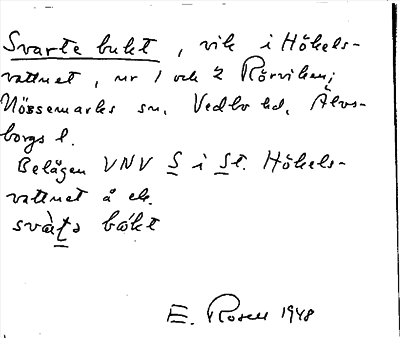 Svarte bukt, vik i Hökels-
vattnet, nr 1 och 2 Rörviken;
Nössemarks sn. Vedbo hd. Älvs-
borgs l.
Belägen VNV S i St. Hökels-
vattnet å ek.
svàʈa bòkt
E. Rosell 1948